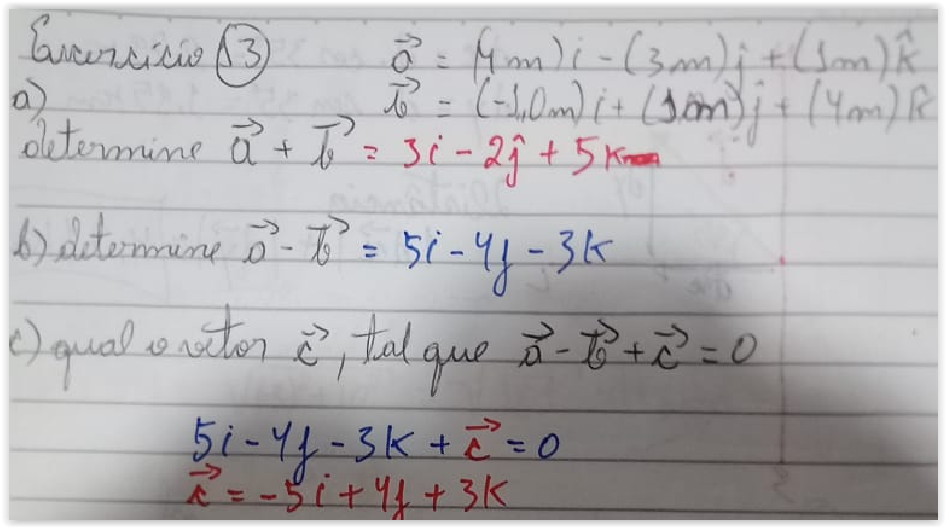 Exercício 13 a⃗ = (4m)i - (3m)j + (1m)k̂
a) b⃗ = (-1,0m)i + (1,0m)j + (4m)k
determine a⃗ + b⃗ = 3i - 2ĵ + 5k
b) determine a⃗ - b⃗ = 5i - 4j - 3k
c) qual o vetor c⃗, tal que a⃗ - b⃗ + c⃗ = 0
5i - 4j - 3k + c⃗ = 0
c⃗ = -5i + 4j + 3k